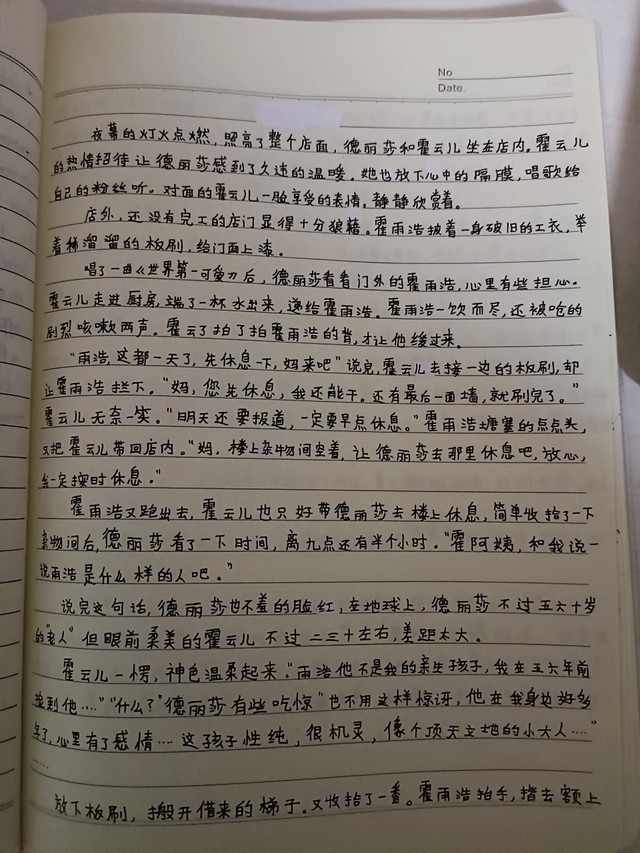 No
Date.
夜幕的灯火点燃，照亮了整个店面，德丽莎和霍云儿坐在店内。霍云儿
的热情招待让德丽莎感到了久违的温暖。她也放下心中的隔膜，唱歌给
自己的粉丝听。对面的霍云儿一脸享受的表情。静静欣赏着。
店外，还没有完工的店门显得十分狼藉。霍雨浩披着一身破旧的工衣，举
着稀溜溜的板刷，给门面上漆。
唱了一曲《世界第一可爱》后，德丽莎看看门外的霍雨浩，心里有些担心。
霍云儿走进厨房，端了一杯水出来，递给霍雨浩。霍雨浩一饮而尽，还被呛的
剧烈咳嗽两声。霍云了拍了拍霍雨浩的背，才让他缓过来。
“雨浩，这都一天了，先休息一下，妈来吧”说完，霍云儿去接一边的板刷，却
让霍雨浩拦下。“妈，您先休息，我还能干。还有最后一面墙，就刷完了。”
霍云儿无奈一笑。“明天还要报道，一定要早点休息。”霍雨浩搪塞的点点头，
又把霍云儿带回店内。“妈，楼上杂物间空着，让德丽莎去那里休息吧，放心，
我一定按时休息。”
霍雨浩又跑出去，霍云儿也只好带德丽莎去楼上休息，简单收拾了一下
杂物间后，德丽莎看了一下时间，离九点还有半个小时。“霍阿姨，和我说一
说雨浩是什么样的人吧。”
说完这句话，德丽莎也不羞的脸红，在地球上，德丽莎不过五六十岁
的“老人”但眼前柔美的霍云儿不过二三十左右，差距太大。
霍云儿一愣，神色温柔起来。“雨浩他不是我的亲生孩子，我在五六年前
捡到他....”“什么？”德丽莎有些吃惊“也不用这样惊讶，他在我身边好多
年了，心里有了感情....这孩子性纯，很机灵，像个顶天立地的小大人....”
......
放下板刷，搬开借来的梯子。又收拾了一番。霍雨浩拍手，揩去额上